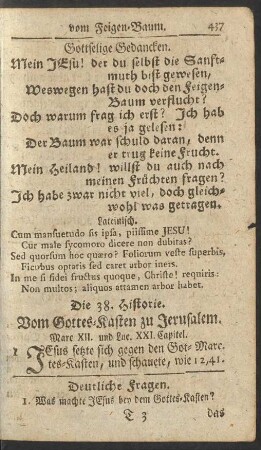 vom Feigen-Baum. 437
Gottselige Gedancken.
Mein JEsu! der du selbst die Sanft-
muth bist gewesen,
Weswegen hast du doch den Feigen-
Baum verflucht?
Doch warum frag ich erst? Ich hab
es ja gelesen:
Der Baum war schuld daran, denn
er trug keine Frucht.
Mein Heiland! willst du auch nach
meinen Früchten fragen?
Ich habe zwar nicht viel, doch gleich-
wohl was getragen.
Lateinisch.
Cum mansuetudo sis ipsa, piissime JESU!
Cur male sycomoro dicere non dubitas?
Sed quorsum hoc quæro? Foliorum veste superbis,
Ficubus optatis sed caret arbor iners.
In me si fidei fructus quoque, Christe! requiris:
Non multos; aliquos attamen arbor habet.
Die 38. Historie.
Vom Gottes-Kasten zu Jerusalem.
Marc XII. und Luc. XXI. Capitel.
1 JEsus setzte sich gegen den Got- Marc.
tes-Kasten, und schauete, wie 12,41.
Deutliche Fragen.
1. Was machte JEsus bey dem Gottes-Kasten?
T 3 das